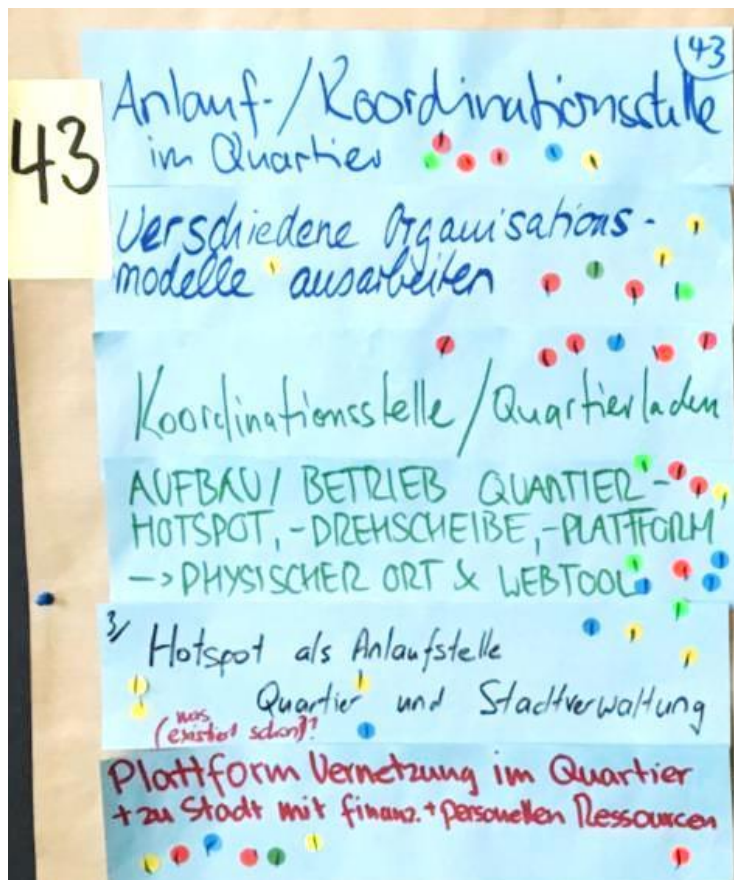 43
43
Anlauf-/Koordinationsstelle
im Quartier
Verschiedene Organisations-
modelle ausarbeiten
Koordinationsstelle/Quartierladen
AUFBAU/ BETRIEB QUARTIER-
HOTSPOT, -DREHSCHEIBE, -PLATTFORM
-> PHYSISCHER ORT & WEBTOOL
3/ Hotspot als Anlaufstelle
Quartier und Stadtverwaltung
(was
existiert schon)?
Plattform Vernetzung im Quartier
+ zu Stadt mit finanz. + personellen Ressourcen